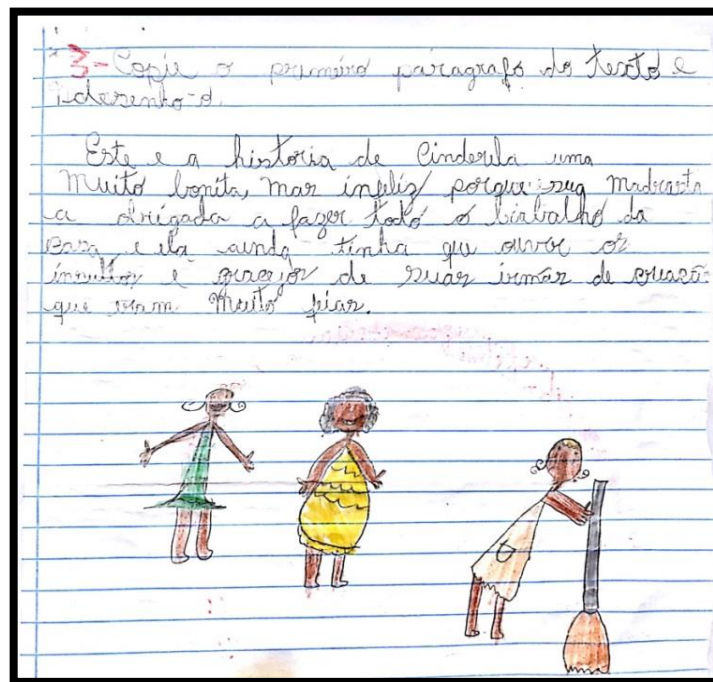 3- Copie o primeiro paragrafo do texto e
desenho-o.
Este e a historia de Cinderela uma
Muito bonita, mas infeliz porque sua Madrasta
a obrigada a fazer todo o trabalho da
casa e ela ainda tinha que ouvir os
insultos e gracejos de suas irmas de criaçã
que eram Muito feias.